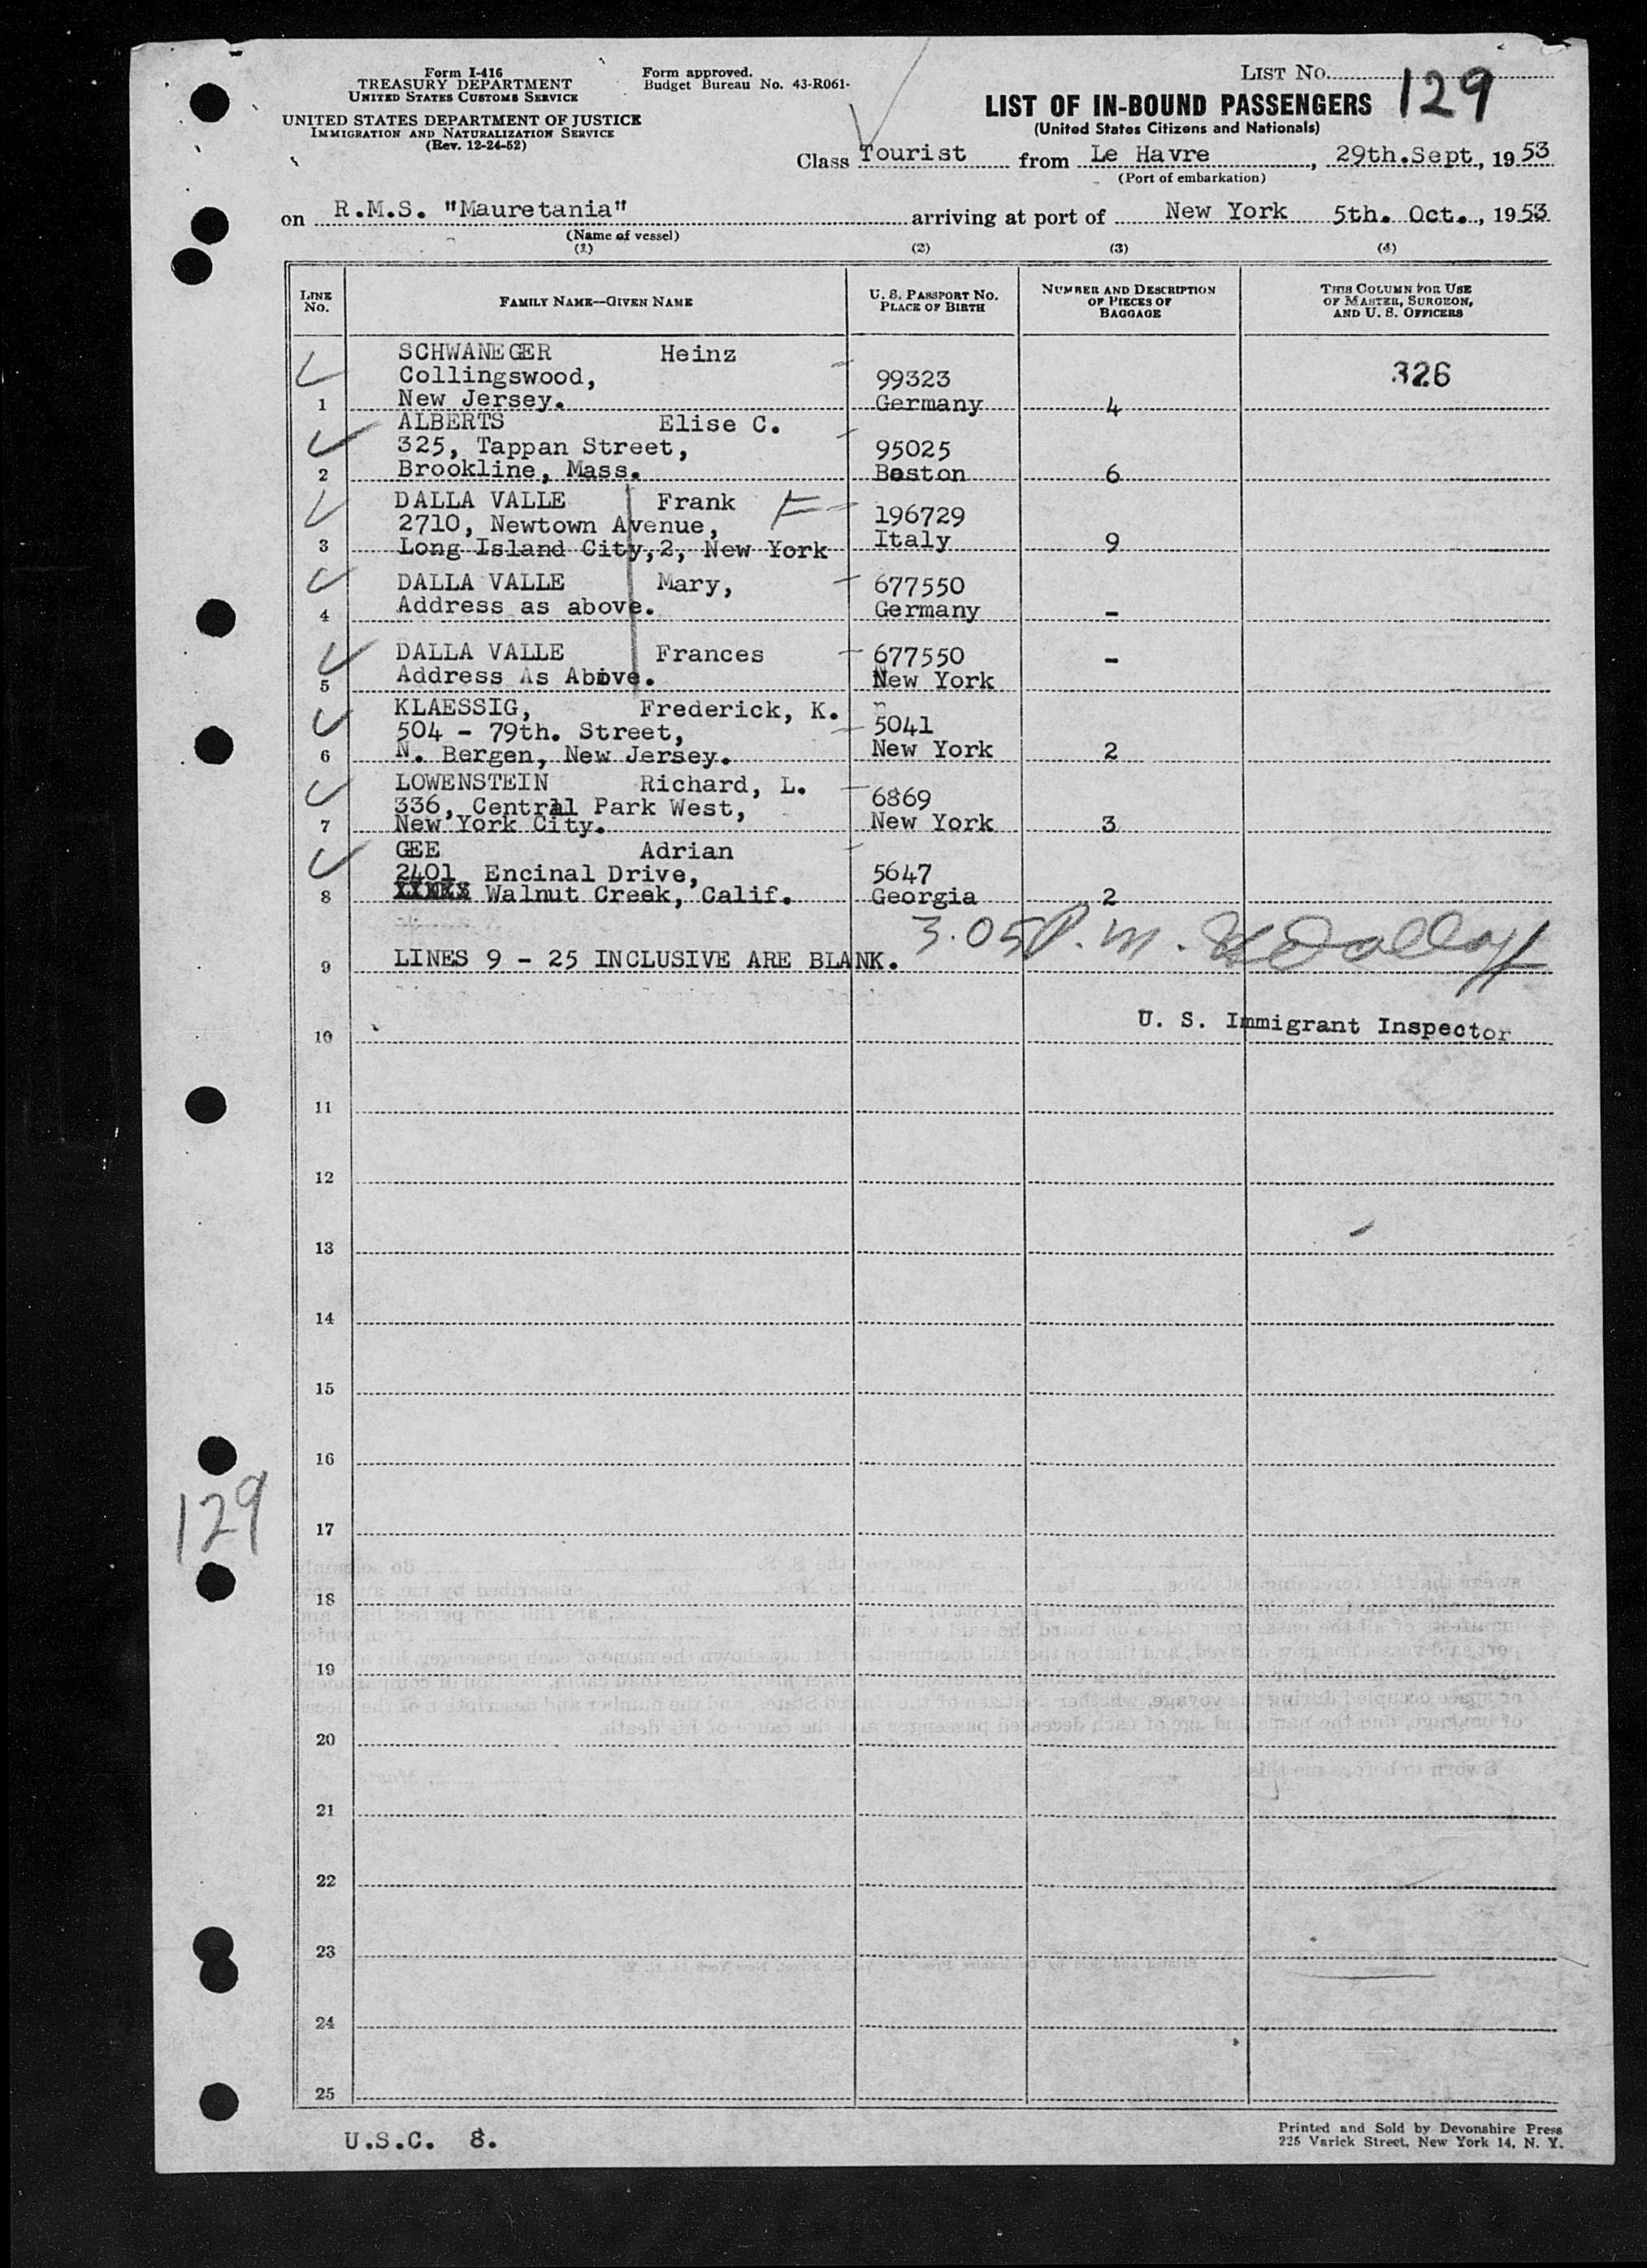 Form I-416
TREASURY DEPARTMENT
UNITED STATES CUSTOMS SERVICE
UNITED STATES DEPARTMENT OF JUSTICE
IMMIGRATION AND NATURALIZATION SERVICE
(Rev. 12-24-52)
Form approved.
Budget Bureau No. 43-R061-
LIST No. 129
LIST OF IN-BOUND PASSENGERS
(United States Citizens and Nationals)
Class Tourist from Le Havre, 29th.Sept., 1953
(Port of embarkation)
on R.M.S. "Mauretania" arriving at port of New York 5th. Oct., 1953
(Name of vessel)
(1) (2) (3) (4)
LINE No. FAMILY NAME—GIVEN NAME U. S. PASSPORT No. PLACE OF BIRTH NUMBER AND DESCRIPTION OF PIECES OF BAGGAGE THIS COLUMN FOR USE OF MASTER, SURGEON, AND U. S. OFFICERS
SCHWANEGER Heinz
Collingswood, 99323 326
1 New Jersey. Germany 4
ALBERTS Elise C.
325, Tappan Street, 95025
2 Brookline, Mass. Boston 6
DALLA VALLE Frank F
2710, Newtown Avenue, 196729
3 Long Island City,2, New York Italy 9
DALLA VALLE Mary, 677550
4 Address as above. Germany -
DALLA VALLE Frances 677550 -
5 Address As Above. New York
KLAESSIG, Frederick, K.
504 - 79th. Street, 5041
6 N. Bergen, New Jersey. New York 2
LOWENSTEIN Richard, L.
336, Central Park West, 6869
7 New York City. New York 3
GEE Adrian
2401 Encinal Drive, 5647
8 Walnut Creek, Calif. Georgia 2
3.05 P.m.
9 LINES 9 - 25 INCLUSIVE ARE BLANK.
U. S. Immigrant Inspector
10
11
12
13
14
15
16
129
17
18
19
20
21
22
23
24
25
U.S.C. 8.
Printed and Sold by Devonshire Press
225 Varick Street, New York 14, N. Y.